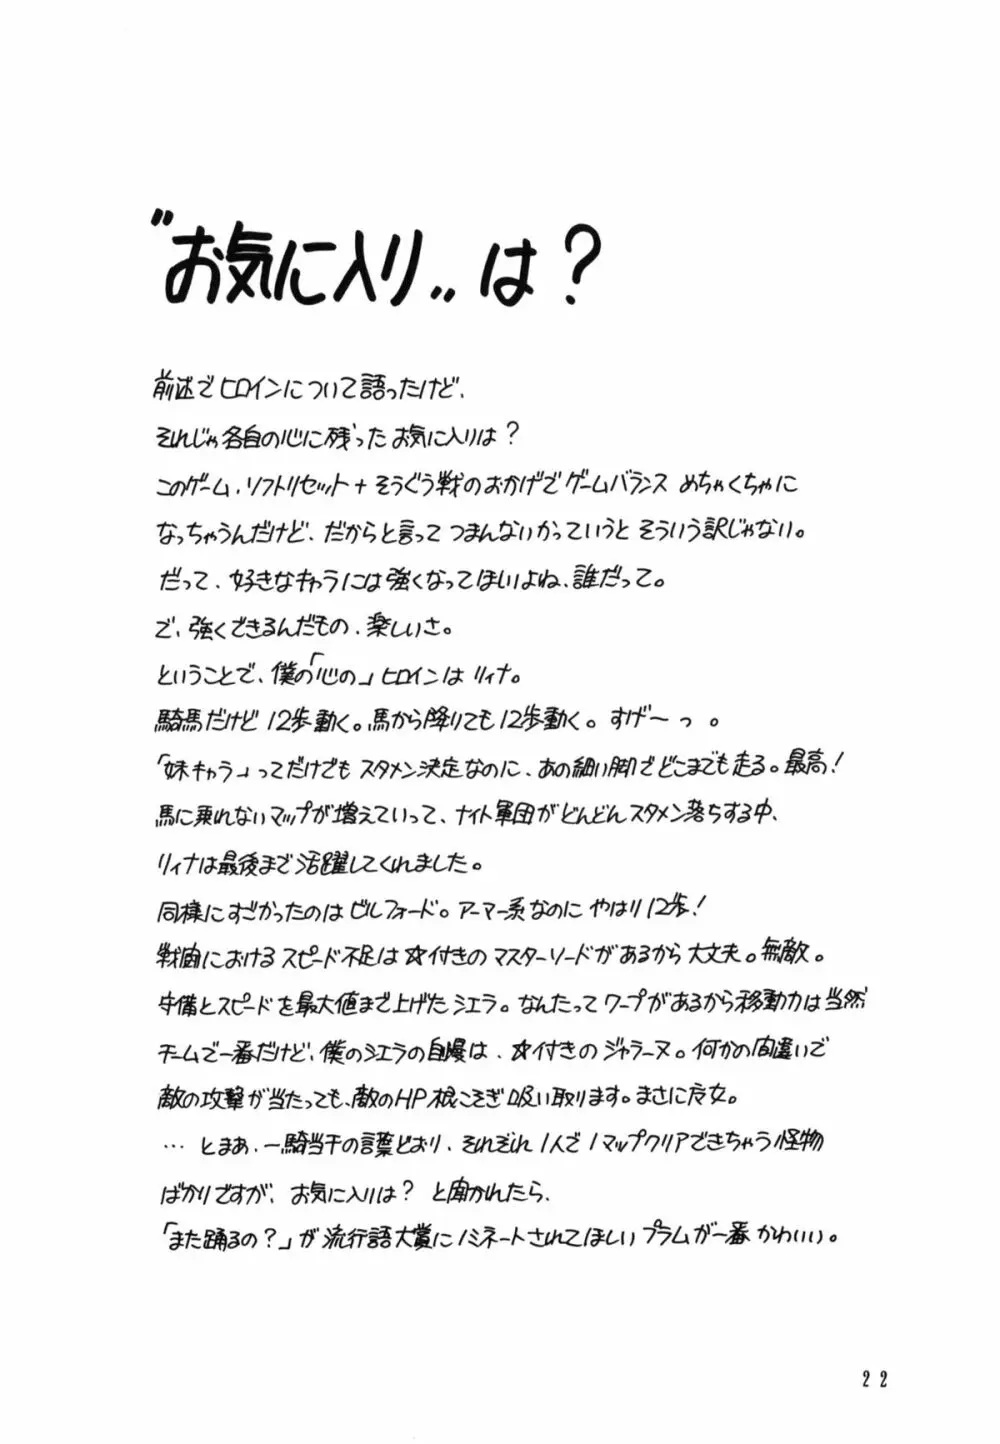 〝お気に入り〟は？
前述でヒロインについて語ったけど、
それじゃ各自の心に残ったお気に入りは？
このゲーム、ソフトリセット＋そうぐう戦のおかげでゲームバランス めちゃくちゃに
なっちゃうんだけど、だからと言って つまんないかっていうと そういう訳じゃない。
だって、好きなキャラには強くなってほしいよね、誰だって。
で、強くできるんだもの、楽しいさ。
ということで、僕の「心の」ヒロインは リィナ。
騎馬だけど 12歩動く。馬から降りても 12歩動く。すげーっ。
「妹キャラ」ってだけでも スタメン決定なのに、あの細い脚でどこまでも走る。最高！
馬に乗れないマップが増えていって、ナイト軍団がどんどんスタメン落ちする中、
リィナは最後まで活躍してくれました。
同様にすごかったのは ビルフォード。アーマー系なのに やはり12歩！
戦闘における スピード不足は ☆付きの マスターソードがあるから 大丈夫。無敵。
守備とスピードを最大値まで上げた シエラ。なんたって ワープがあるから移動力は当然
チームで一番だけど、僕のシエラの自慢は、☆付きの ジャヌーラ。何かの間違いで
敵の攻撃が当たっても、敵のHP根こそぎ吸い取ります。まさに魔女。
… とまあ、一騎当千の言葉どおり、それぞれ 1人で 1マップクリアできちゃう怪物
ばかりですが、お気に入りは？ と聞かれたら、
「また踊るの？」が 流行語大賞にノミネートされてほしい プラムが一番 かわいい。
22